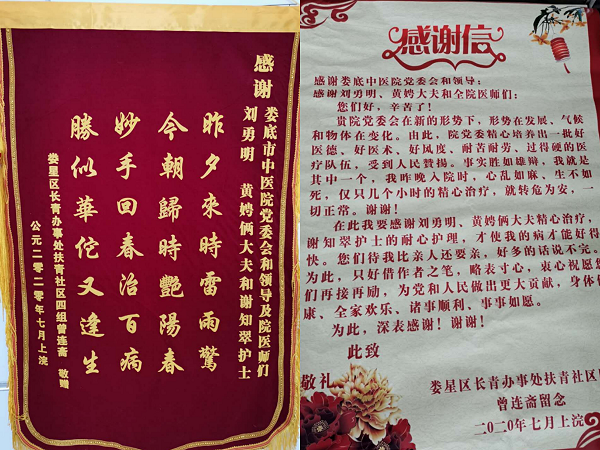 感谢
娄底市中医院党委会和领导及院医师们
刘勇明 黄娉俩大夫和谢知翠护士
昨夕來時雷雨驚
今朝歸時艷陽春
妙手回春治百病
勝似華佗又逢生
娄星区长青办事处扶青社区四组曾连斋 敬赠
公元二〇二〇年七月上浣
感谢信
感谢娄底中医院党委会和领导：
感谢刘勇明、黄娉大夫和全院医师们：
您们好，辛苦了！
贵院党委会在新的形势下，形势在发展、气候
和物体在变化。由此，院党委精心培养出一批好
医德、好医术、好风度、耐苦耐劳、过得硬的医
疗队伍，受到人民赞扬。事实胜如雄辩，我就是
其中一个，我昨晚入院时，心乱如麻、生不如
死，仅只几个小时的精心治疗，就转危为安，一
切正常。谢谢！
在此我要感谢刘勇明、黄娉俩大夫精心治疗，
谢知翠护士的耐心护理，才使我的病才能好得
快。您们待我比亲人还要亲，好多的话说不完。
为此，只好借作者之笔，略表寸心，衷心祝愿您
们再接再励，为党和人民做出更大贡献，身体健
康、全家欢乐、诸事顺利、事事如愿。
为此，深表感谢！谢谢！
此致
敬礼
娄星区长青办事处扶青社区
曾连斋留念
二〇二〇年七月上浣